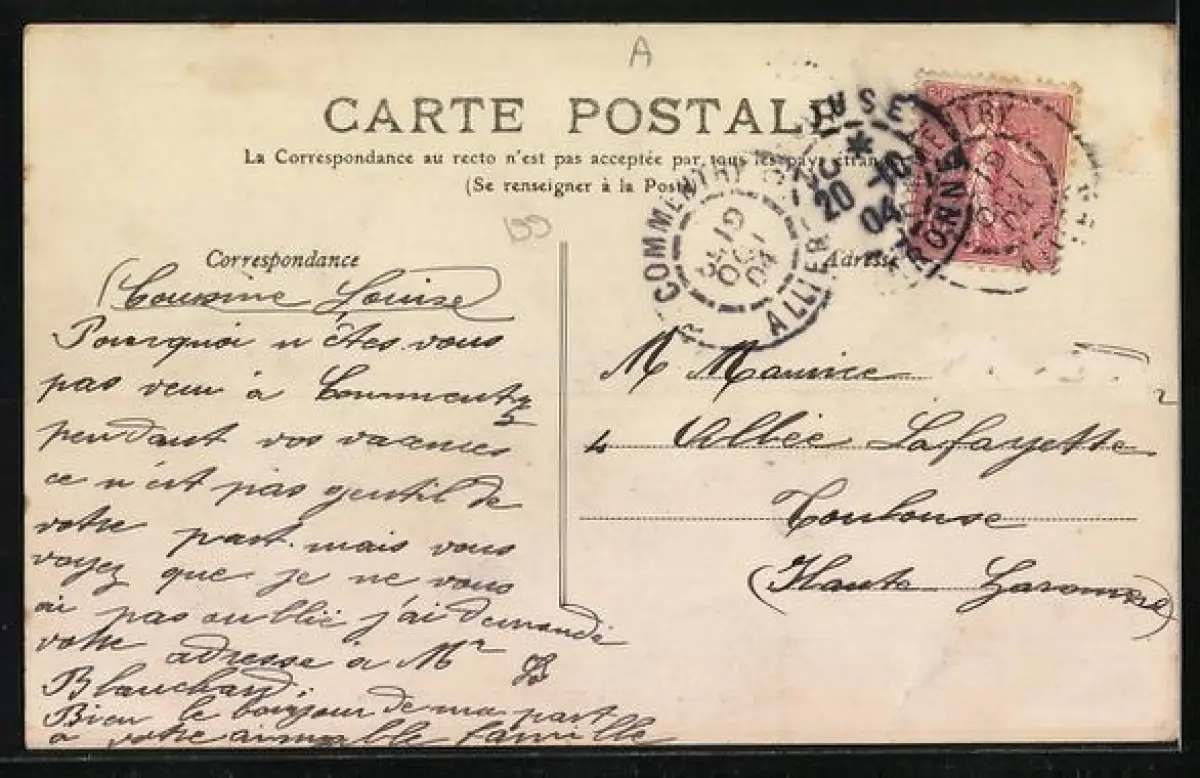 A
CARTE POSTALE
La Correspondance au recto n'est pas acceptée par tous les pays étran
(Se renseigner à la Poste)
COMMENTRY
ALLIER
19
OCT
04
20 -10
04
Correspondance
Adresse
(Cousine Louise)
Pourquoi n'êtes vous
pas venu à Commentry
pendant vos vacances
ce n'est pas gentil de
votre part. mais vous
voyez que je ne vous
ai pas oublié j'ai demandé
votre adresse à Mr
Blanchard.
Bien le bonjour de ma part
à votre aimable famille
M Maurice
4 Allée Lafayette
Toulouse
(Haute Garonne)